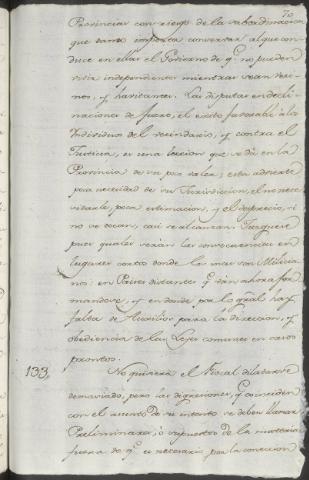 70
Provincias con riesgo de la subordinacion
que tanto importa conservar al que con-
duce en ellas el Govierno de q.e no pueden
vivir independientes mientras sean veci-
nos, y havitantes. Las disputas en decli-
naciones de fuero, el exito favorable à los
Individuos del vecindario, y contra el
Justicia, es una leccion que se dá en la
Provincia de su poco valer; esta advierte
poca necesidad de su Jurisdiccion, el no nece-
sitarle, poca estimacion, y el desprecio, si
no se tocan, casi se alcanzan. Juzguese
pues quales serian las consecuencias en
Lugares cortos donde los mas son Milicia
nos: en Paises distantes q.e van ahora for
mandose, y en donde por lo gral hay
falta de Auxilios para la direccion, y
obediencia de las Leyes comunes en casos
prontos.
133, No quisiera el Fiscal dilatarse
demasiado, pero las digresiones, q.e coinciden
con el asunto de su intento se deben llamar
Preliminares, ò supuestos de la materia
fuera de q.e es necesario por la conexion